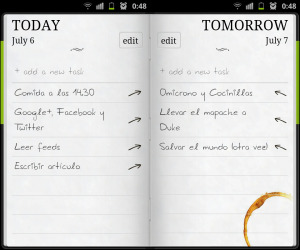 0:48
0:48
TODAY
July 6
edit
+ add a new task
Comida a las 14.30
Google+, Facebook y
Twitter
Leer feeds
Escribir artículo
TOMORROW
edit
July 7
+ add a new task
Omicrono y Cocinillas
Llevar el mapache a
Duke
Salvar el mundo (otra vez)